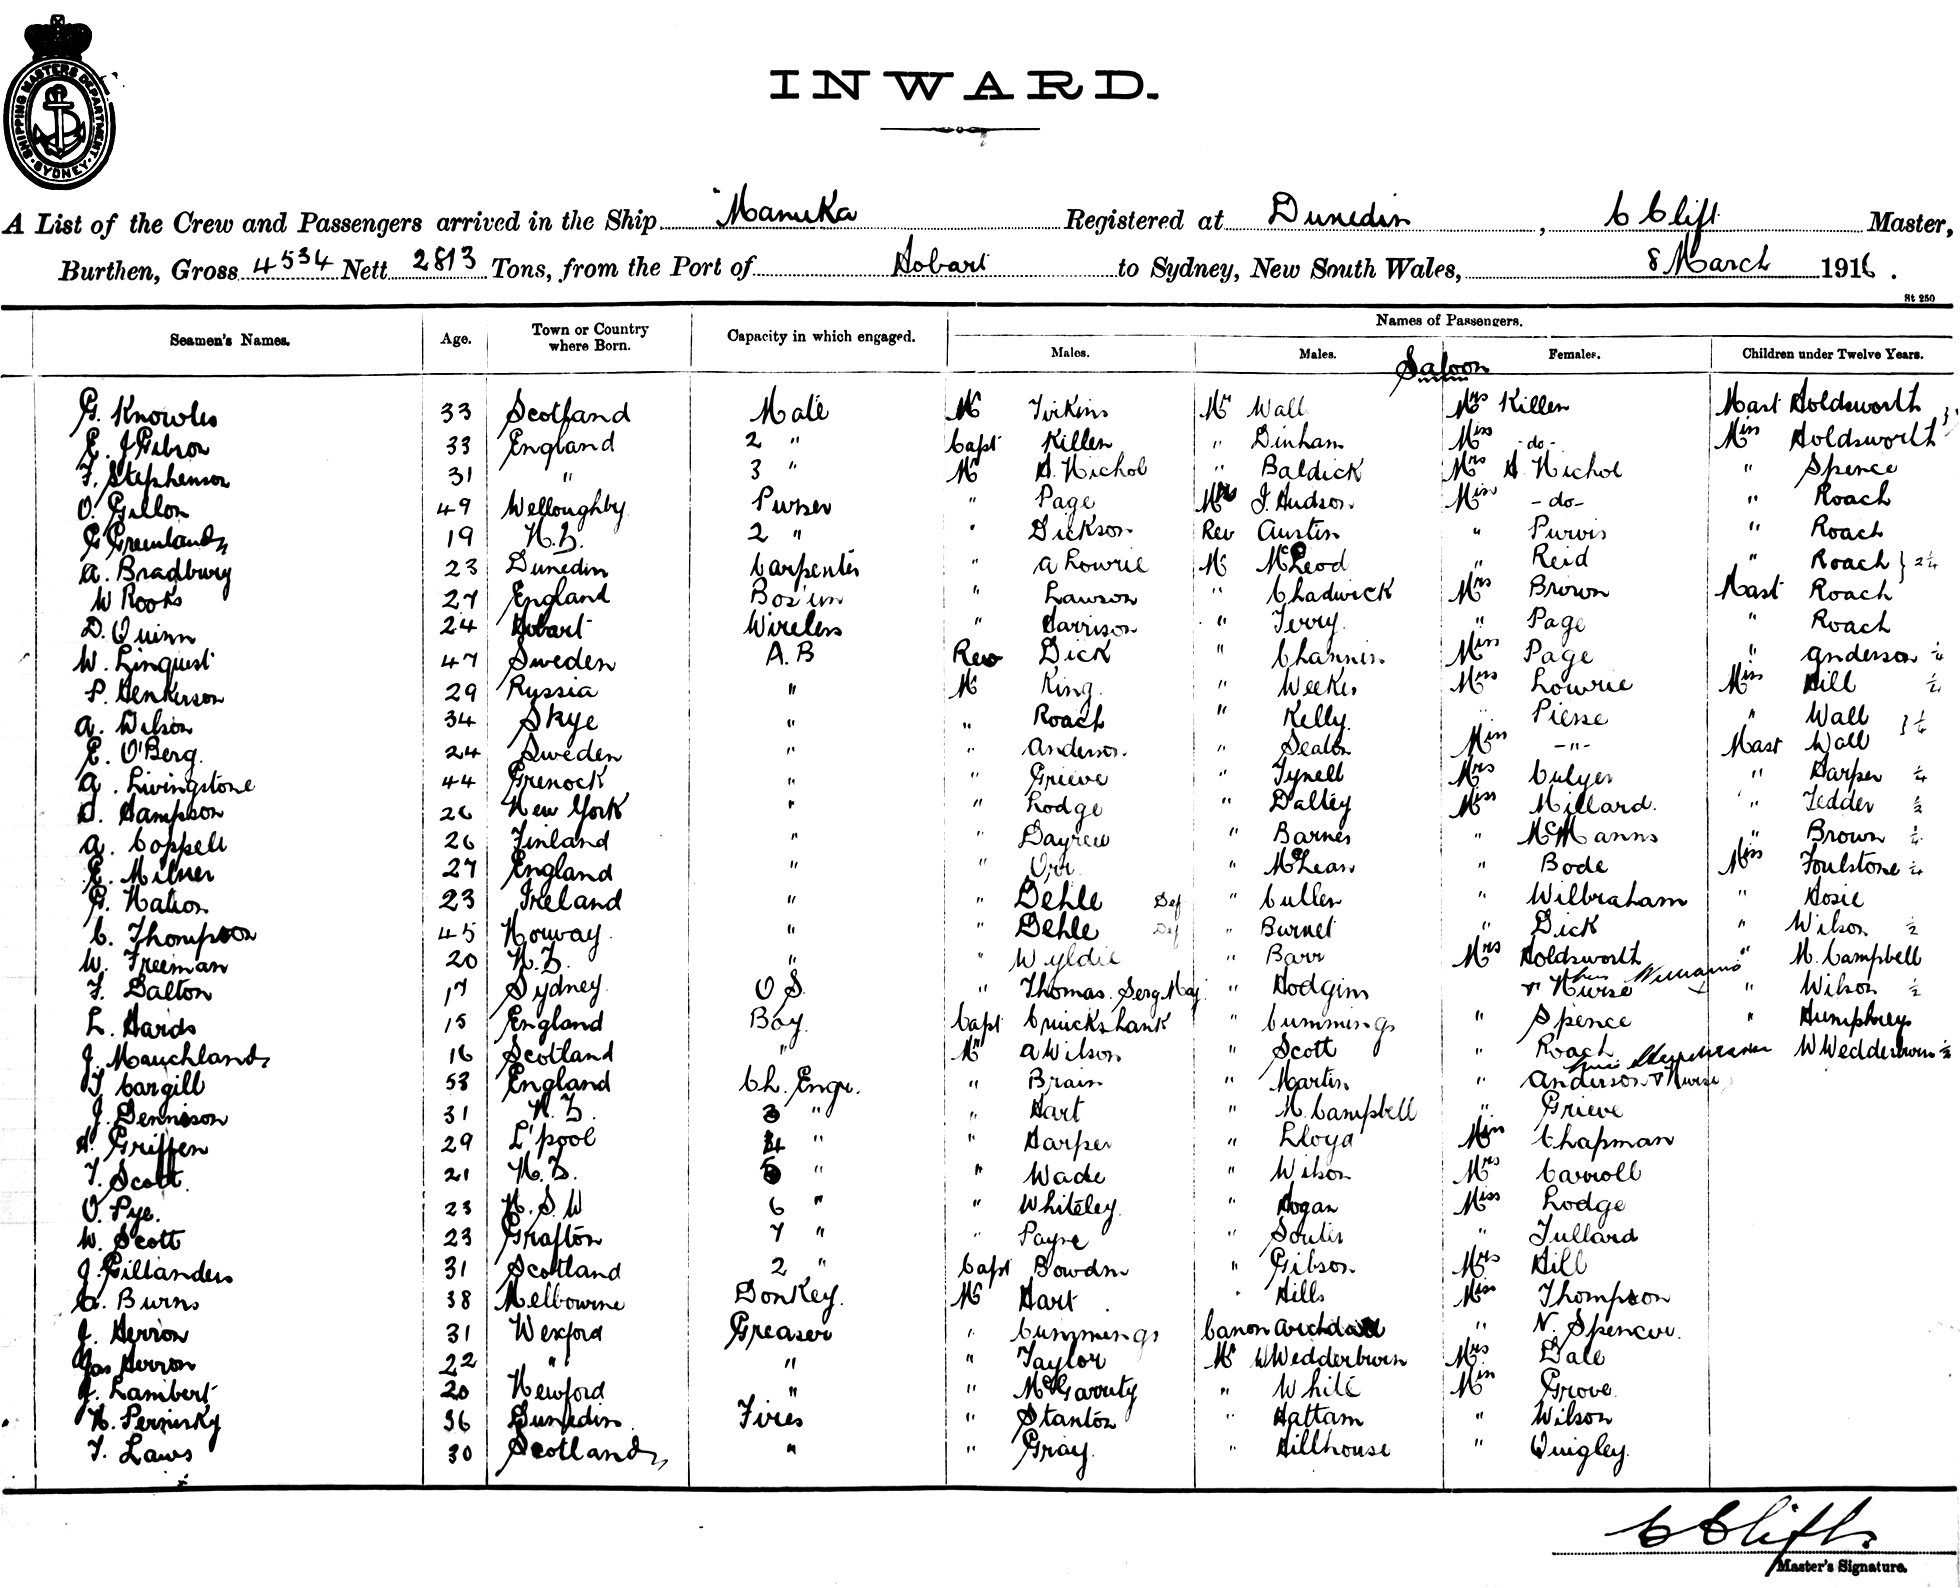 SHIPPING MASTERS DEPARTMENT · SYDNEY ·
INWARD.
A List of the Crew and Passengers arrived in the Ship Manuka Registered at Dunedin, C Clift Master,
Burthen, Gross 4534 Nett 2813 Tons, from the Port of Hobart to Sydney, New South Wales, 8 March 1916.
St 250
Seamen's Names. Age. Town or Country where Born. Capacity in which engaged. Names of Passengers.
Males. Males. Females. Children under Twelve Years.
Saloon
G. Knowles 33 Scotland Mate Mr Tirkins Mr Wall Mrs Killen Mast Holdsworth
E. J Gibson 33 England 2 " Capt Killen " Dinham Miss -do- Miss Holdsworth
F. Stephenson 31 " 3 " Mr H. Nichol " Baldick Mrs H Nichol " Spence
O. Gillon 49 Welloughby Purser " Page J. Hudson Miss -do- " Roach
G Greenlands 19 N.Z. 2 " " Dickson Rev Austin " Purvis " Roach
A. Bradbury 23 Dunedin Carpenter " A Lowrie Mr McLeod " Reid " Roach } 2¼
W Rooks 27 England Bos'un " Lawson " Chadwick Mrs Brown Mast Roach
D. Quinn 24 Hobart Wireless " Harrison " Terry " Page " Roach
W. Linquist 47 Sweden A.B Rev Dick " Channin Miss Page " Anderson ¼
P. Henkerson 29 Russia " Mr King " Weekes Mrs Lowrie Miss Hill ½
A. Wilson 34 Skye " " Roach " Kelly " Piesse " Wall
E. O'Berg 24 Sweden " " Anderson " Seaton Miss -"- Mast Wall
A. Livingstone 44 Grenock " " Grieve " Tynell Mrs Culyer " Harper ¼
D. Hampson 26 New York " " Lodge " Dalley Miss Millard " Tedder ½
A. Coppell 26 Finland " " Dayrew " Barnes " McManns " Brown ¼
E. Milner 27 England " " Orr " McLean " Bode Miss Foulstone ¼
G. Nation 23 Ireland " " Dehle Def " Cullen " Wilbraham " Hosie
C. Thompson 45 Norway " " Dehle Def " Burnet " Dick " Wilson ½
W. Freeman 20 N.Z. " " Wyldie " Barr Mrs Holdsworth " M. Campbell
F. Dalton 17 Sydney O S. " Thomas. Serg Maj. " Hodgins & Nurse Williams " Wilson ½
L. Hards 15 England Boy Capt Cruickshank " Cummings " Spence " Humphreys
J. Mauchland 16 Scotland " Mr A Wilson " Scott " Roach W Wedderburn ½
T Cargill 53 England Ch. Engr. " Brain " Martin " Anderson & Nurse
J. Dennison 31 N.Z. 3 " " Hart " M. Campbell " Grieve
H. Griffen 29 L'pool 4 " " Harper " Lloyd Miss Chapman
T. Scott 21 N.Z. 5 " " Wade " Wilson Mrs Carroll
O. Pye. 23 N.S.W 6 " " Whiteley " Hogan Miss Lodge
W. Scott 23 Grafton 7 " " Payne " Souter " Tullard
J. Gillanders 31 Scotland 2 " Capt Bowdn " Gibson Mrs Hill
A. Burns 38 Melbourne Donkey. Mr Hart " Hills Miss Thompson
J. Herron 31 Wexford Greaser " Cummings Canon Archdall " N. Spencer.
Jas Herron 22 " " " Taylor Mr W Wedderburn Mrs Dale
J. Lambert 20 Newford " " McGarrity " White Miss Grove
N. Pernisky 36 Dunedin Fires " Stanton " Hattam " Wilson
T. Laws 30 Scotland " " Gray " Hillhouse " Quigley
C Clift
Master's Signature.